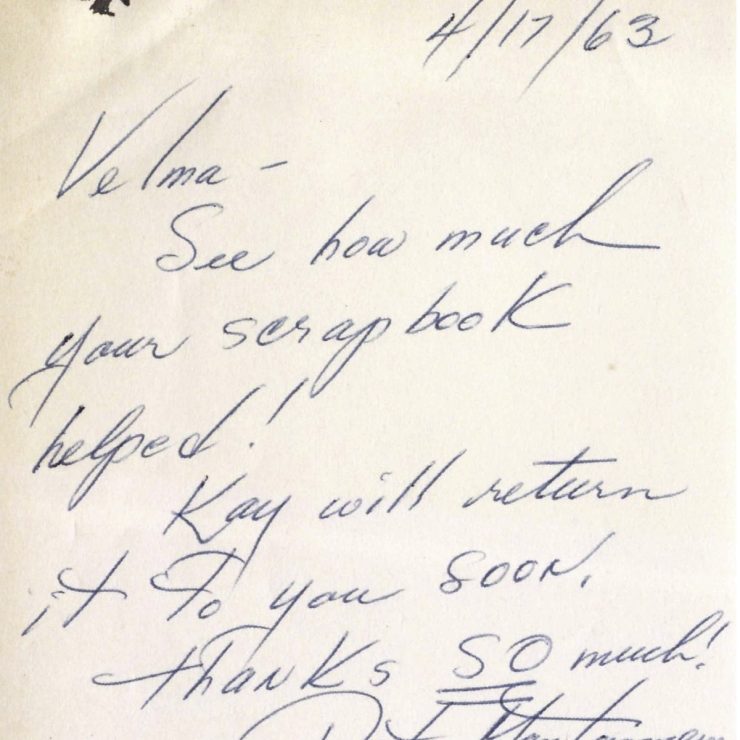 4/17/63
Velma -
See how much
your scrapbook
helped!
Kay will return
it to you soon.
Thanks SO much!